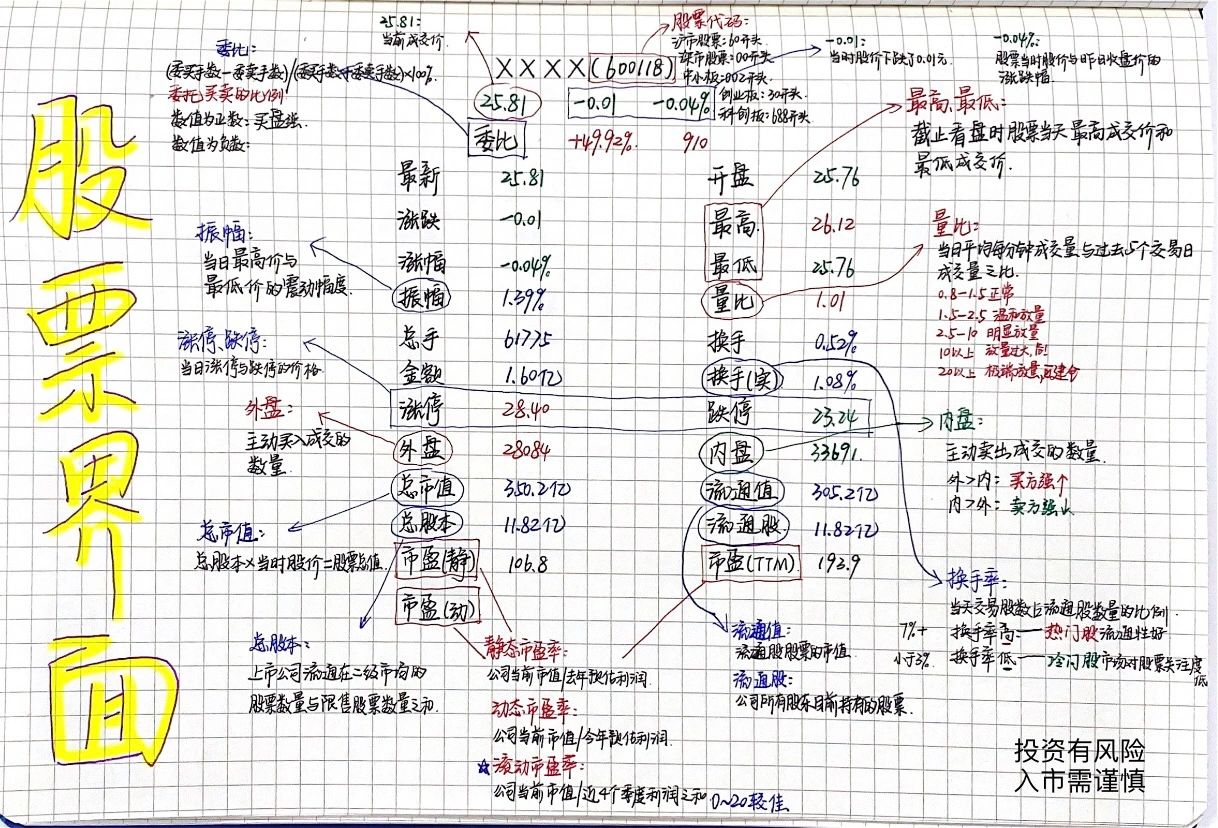 股票界面
25.81:
当前成交价.
股票代码:
沪市股票:60开头
深市股票:00开头
中小板:002开头
创业板:30开头
科创板:688开头
-0.01:
当时股价下跌了0.01元.
-0.04%:
股票当时股价与昨日收盘价的
涨跌幅.
委比:
(委买手数-委卖手数)/(委买手数+委卖手数)×100%
委托买卖的比例
数值为正数:买盘强.
数值为负数:
XXXX(600118)
25.81 -0.01 -0.04%
委比 +49.92% 910
最新 25.81 开盘 25.76
涨跌 -0.01 最高 26.12
涨幅 -0.04% 最低 25.76
振幅 1.39% 量比 1.01
总手 61775 换手 0.52%
金额 1.60亿 换手(实) 1.08%
涨停 28.40 跌停 23.24
外盘 28084 内盘 33691.
总市值 350.2亿 流通值 305.2亿
总股本 11.82亿 流通股 11.82亿
市盈(静) 106.8 市盈(TTM) 193.9
市盈(动)
最高、最低:
截止看盘时股票当天最高成交价和
最低成交价.
振幅:
当日最高价与
最低价的震动幅度.
量比:
当日平均每分钟成交量与过去5个交易日
成交量之比.
0.8-1.5正常
1.5-2.5 温和放量
2.5-10 明显放量
10以上 放量过大,
20以上 极端放量,
涨停、跌停:
当日涨停与跌停的价格
外盘:
主动买入成交的
数量.
内盘:
主动卖出成交的数量.
外>内: 买方强个
内>外: 卖方强
总市值:
总股本×当时股价=股票总值.
换手率:
当天交易股数占流通股数量的比例.
7%+ 换手率高—热门股流通性好
小于3% 换手率低—冷门股市场对股票关注度
低
总股本:
上市公司流通在二级市场的
股票数量与限售股票数量之和.
静态市盈率:
公司当前市值/去年预估利润.
动态市盈率:
公司当前市值/今年预估利润.
☆滚动市盈率:
公司当前市值/近4个季度利润之和 0~20较佳
流通值:
流通股股票的市值.
流通股:
公司所有股东目前持有的股票.
投资有风险
入市需谨慎